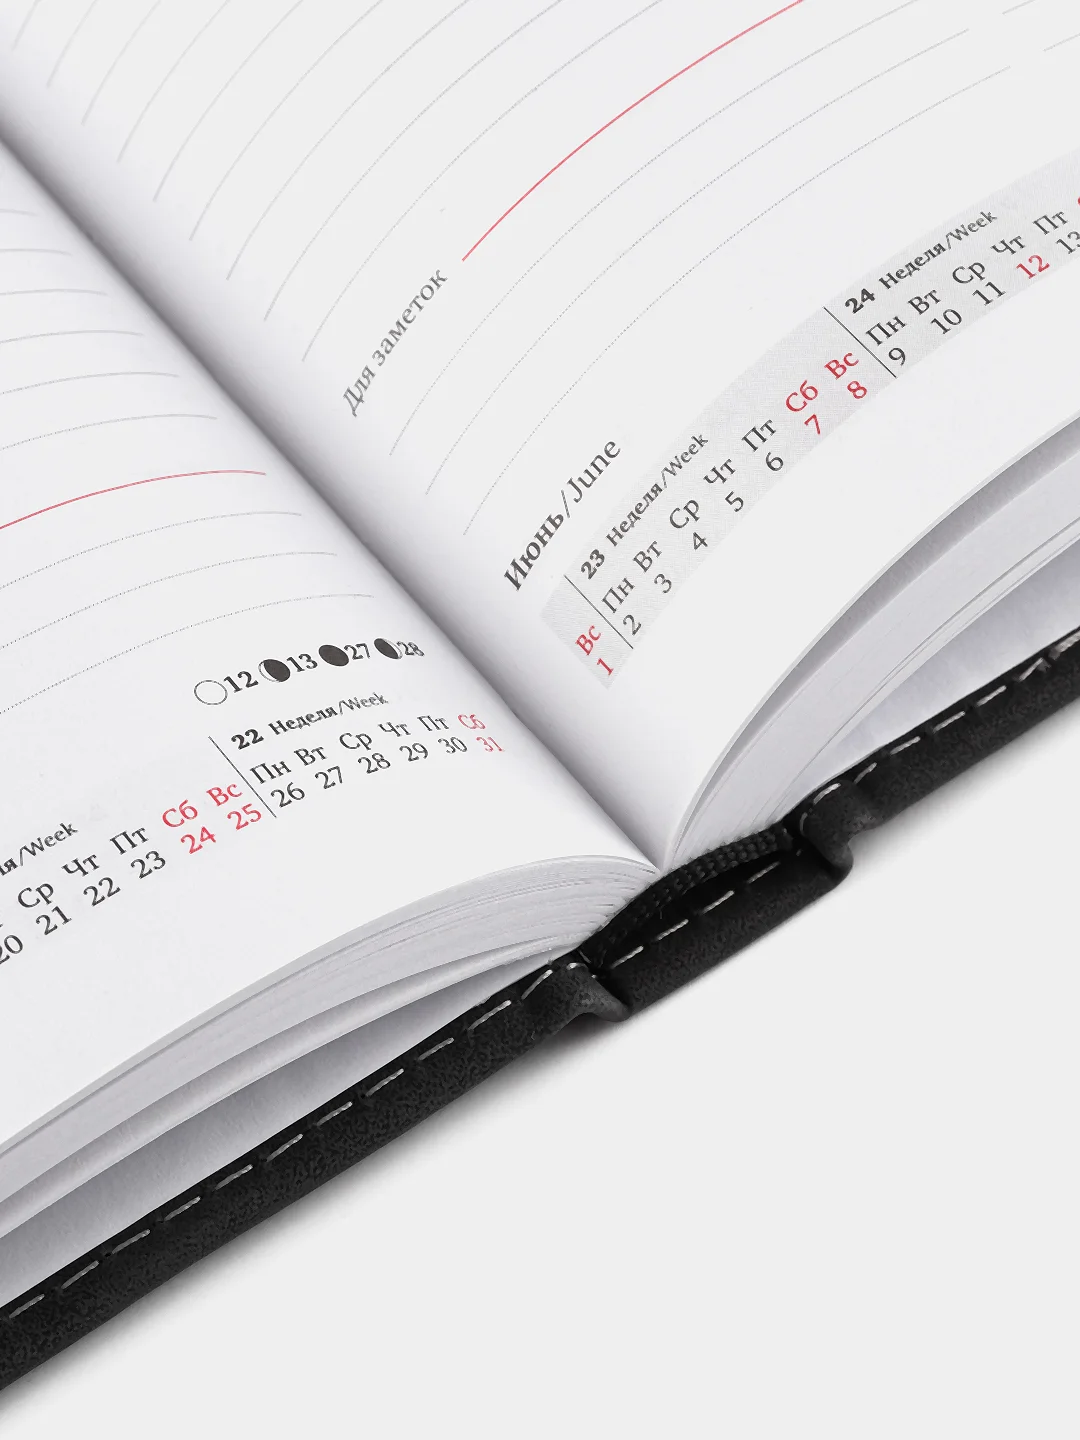 12 13 27 28
22 Неделя/Week
/Week
Ср Чт Пт Сб Вс Пн Вт Ср Чт Пт Сб
20 21 22 23 24 25 26 27 28 29 30 31
Для заметок
Июнь/June
23 Неделя/Week
24 Неделя/Week
Вс Пн Вт Ср Чт Пт Сб Вс Пн Вт Ср Чт Пт
1 2 3 4 5 6 7 8 9 10 11 12 13